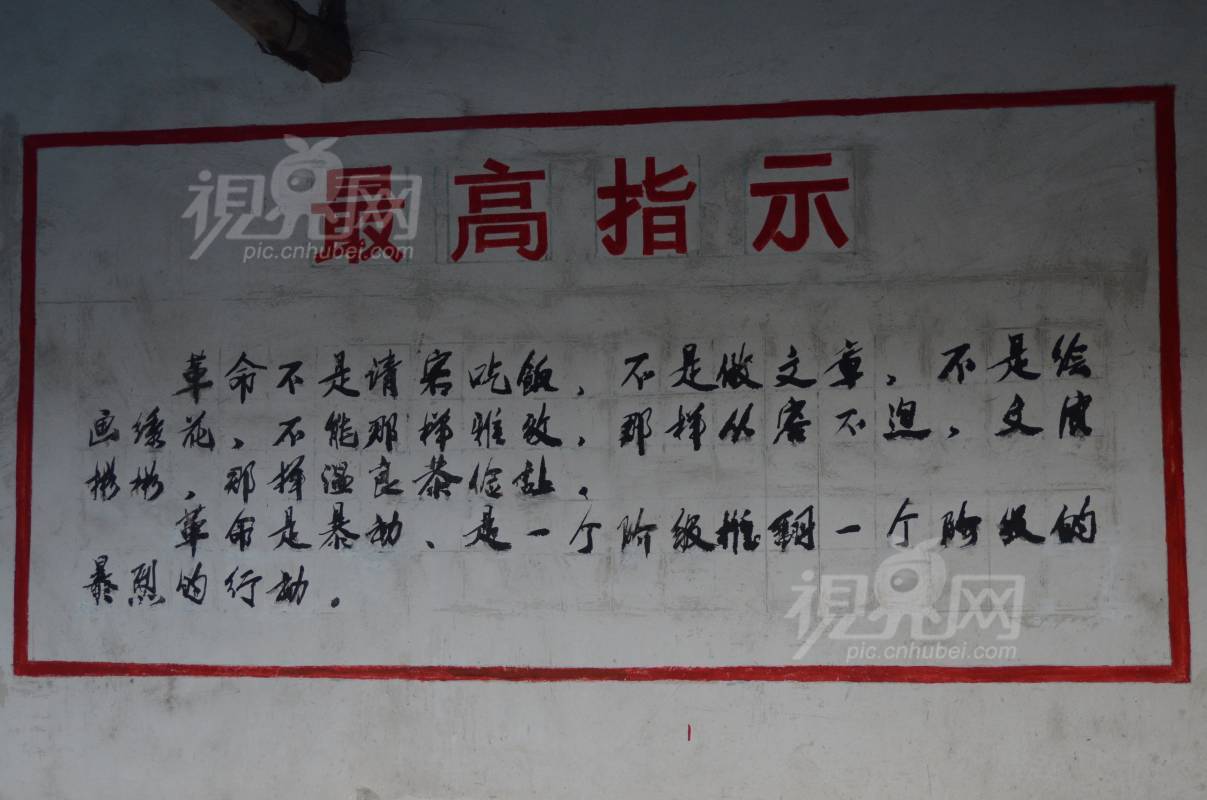 最高指示
視界网
pic.cnhubei.com
革命不是请客吃饭，不是做文章，不是绘
画绣花，不能那样雅致，那样从容不迫，文质
彬彬，那样温良恭俭让。
革命是暴动、是一个阶级推翻一个阶级的
暴烈的行动。
視界网
pic.cnhubei.com